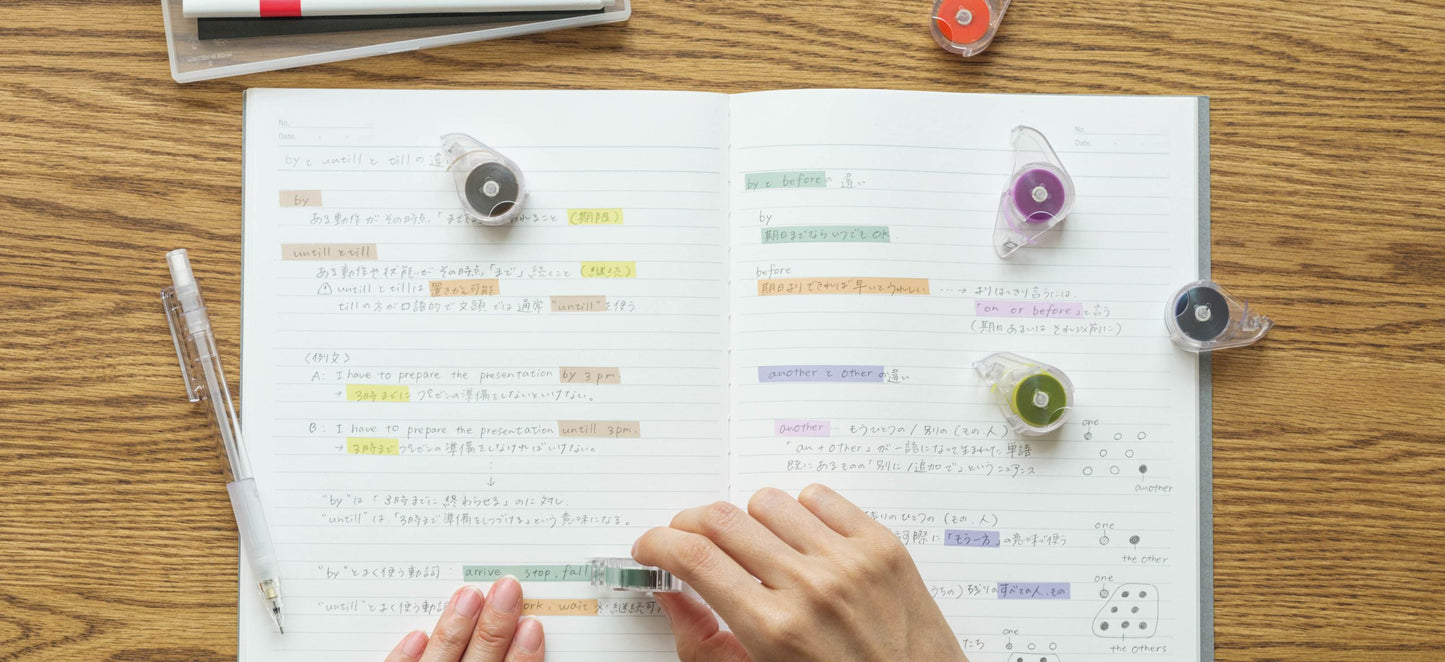 No.
Date.
byと untillと tillの違
by
ある動作がその時点,「まで れること (期限)
untillとtill
ある動作や状態がその時点,「まで」続くこと (継続)
untillとtillは 置きかえ可能
tillの方が口語的で文頭では通常 "untill"を使う
〈例文〉
A: I have to prepare the presentation by 3 pm
→ 3時までにプレゼンの準備をしないといけない。
B: I have to prepare the presentation untill 3pm.
→ 3時までプレゼンの準備をしなければいけない。
↓
"by"は「3時までに終わらせる」のに対し
"untill"は「3時まで準備をしつづける」という意味になる。
"by"とよく使う動詞: arrive stop, fall
"untill"とよく使う動 ork, wait
No.
Date.
byと beforeの違い
by
期日までならいつでもOK.
before
期日よりできれば早いとうれしい ・・・→ よりはっきり言うには、
"on or before"と言う
(期日あるいはそれ以前に)
anotherと otherの違い
another … もうひとつの / 別の (もの, 人)
「an + other」が一語になって生まれた単語
既にあるものの「別に / 追加で」というニュアンス
one
another
残りのひとつの (もの, 人)
際に「もう一方」の意味で使う
one
the other
うちの) 残りのすべての人、もの
one
the others
たち
one